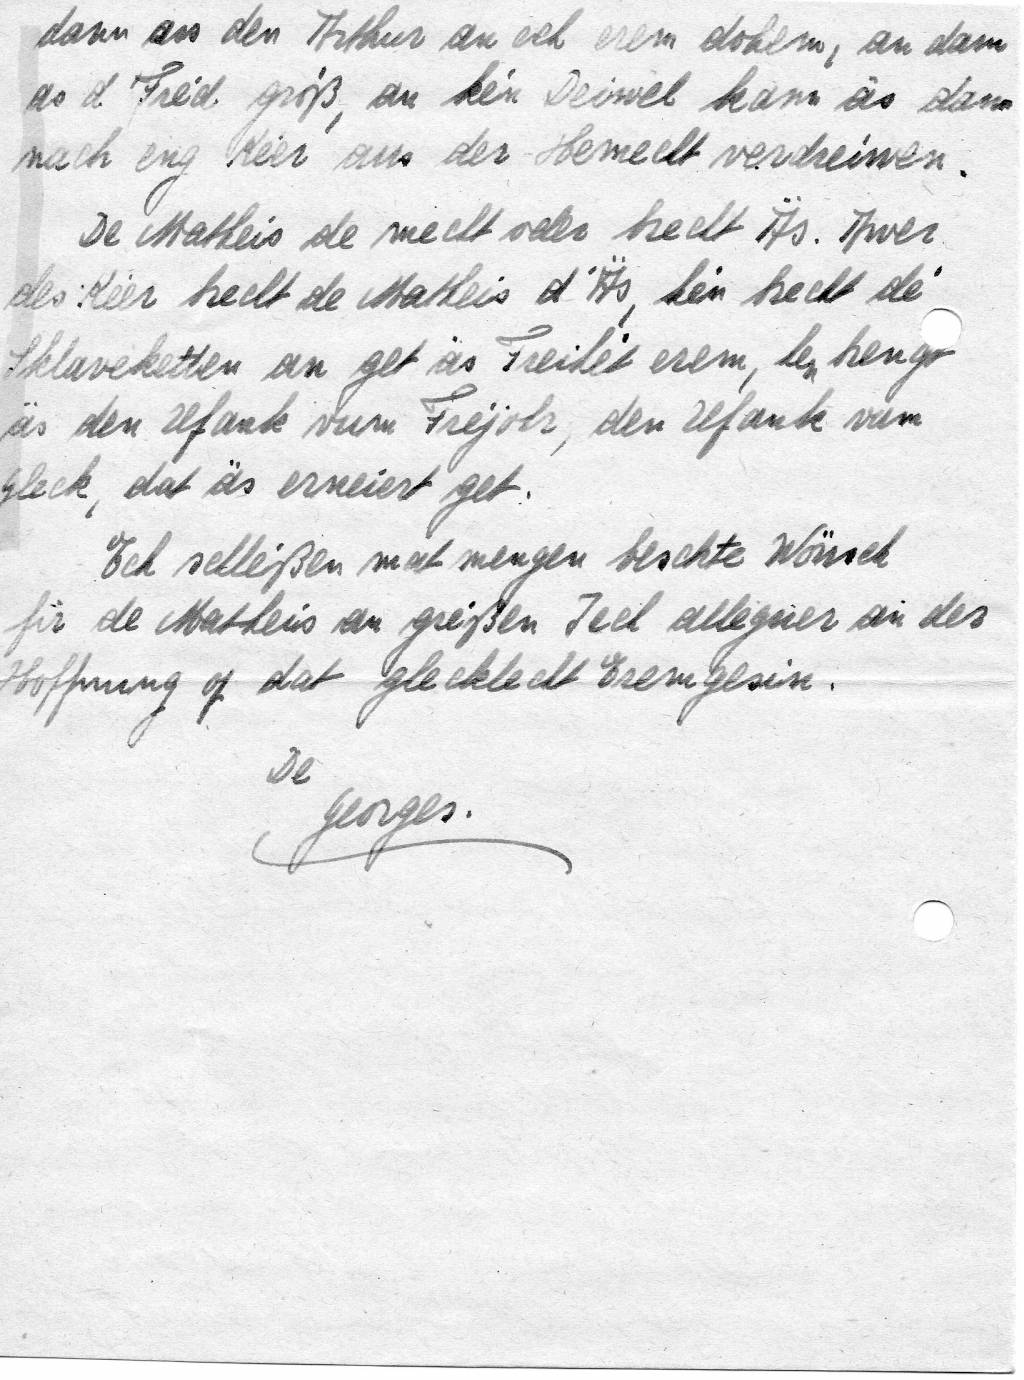 dann as den Arthur an ech erem dohem, an dann
as d'Fréd gróß, an kén Deiwel kann äs dann
nach eng Kéer aus der Hemecht verdreiwen.
De Matheis de mecht oder brecht Äs. Awer
des Kéer brecht de Matheis d'Äs, hén brecht dé
Sklaveketten an get äs Freihét erem, hen brengt
äs den Ufank vum Fréjohr, den Ufank vum
Gleck, dat äs erneiert get.
Ech schléißen mat mengen beschte Wönsch
fir de Matheis an gréißen Iech alleguer an der
Hoffnung op dat glecklecht Eremgesin.
De
Georges.